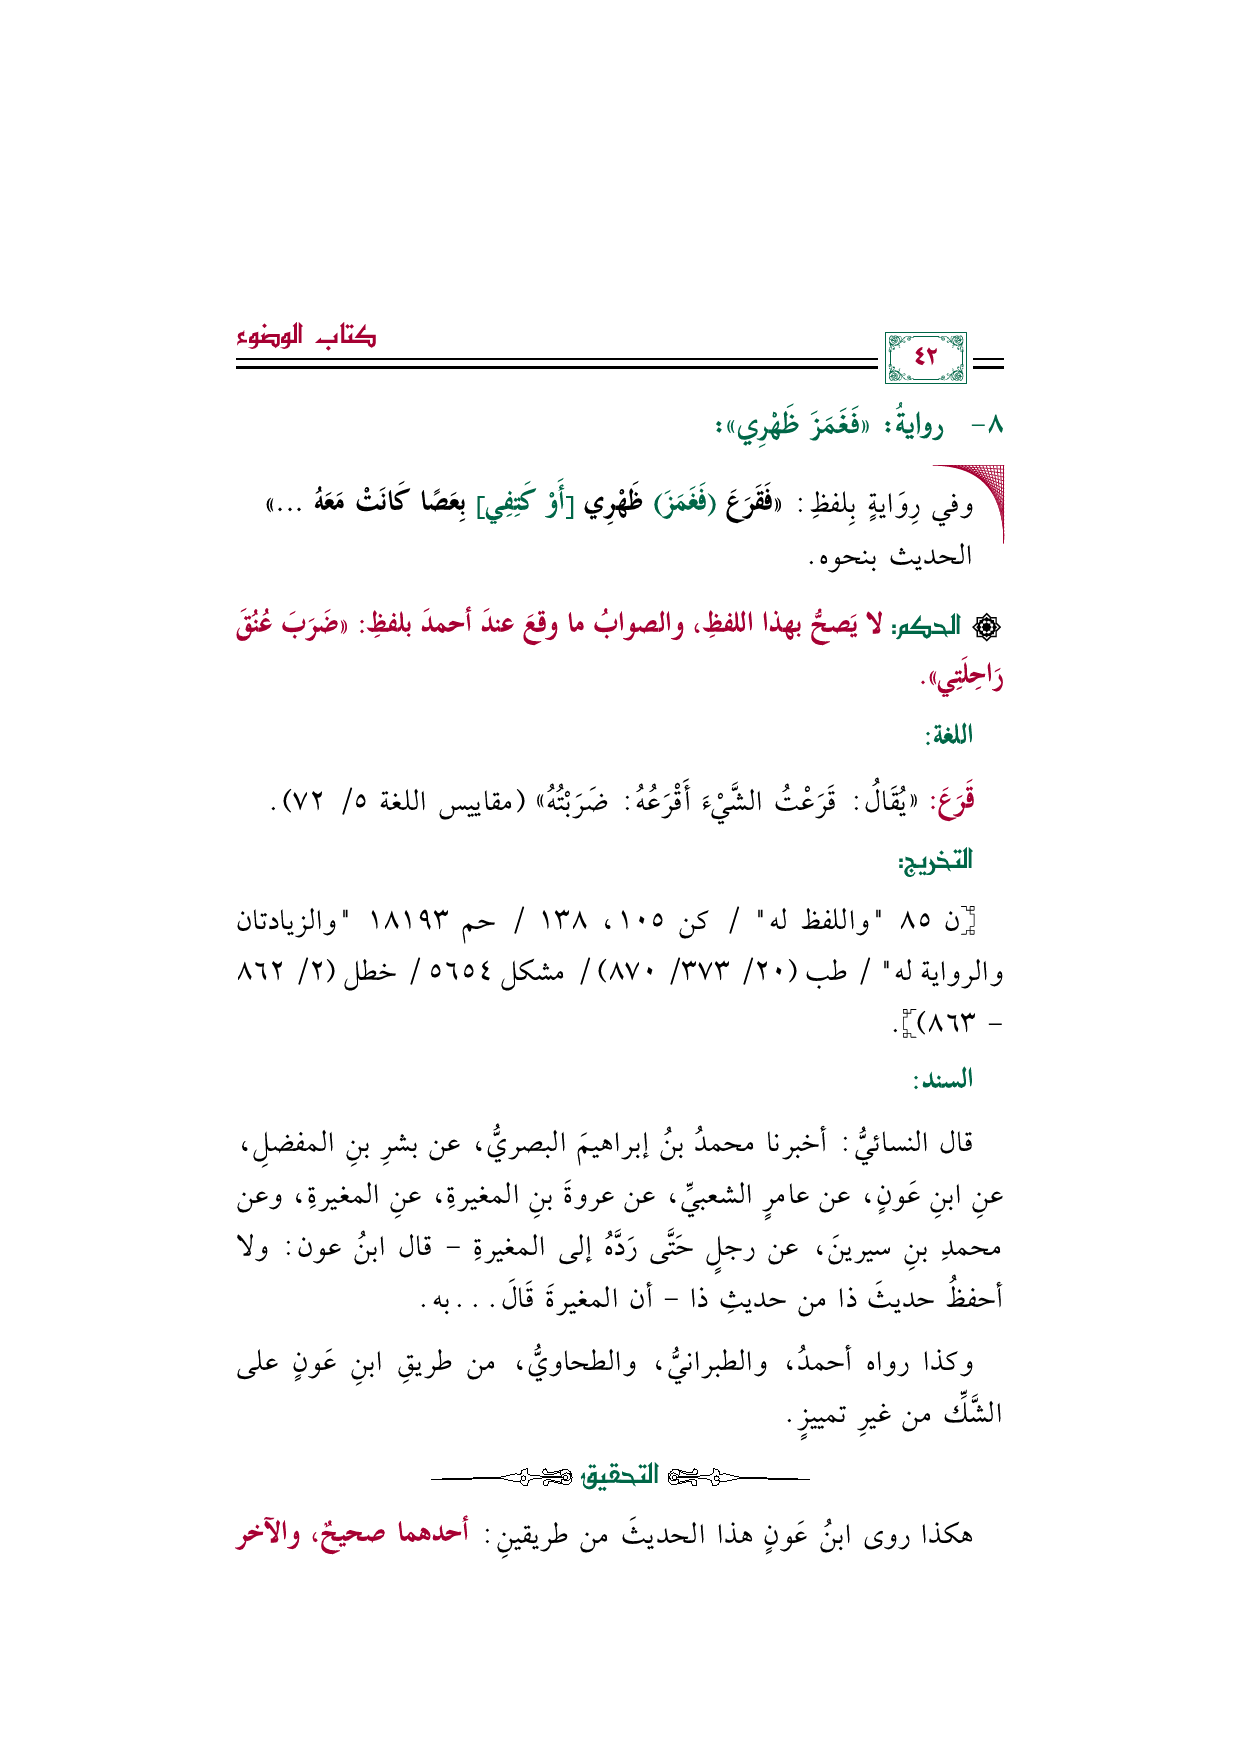 كتاب الوضوء
٤٢
٨- روايةُ: «فَغَمَزَ ظَهْرِي»:
وفي رِوَايةٍ بِلفظِ: «فَقَرَعَ (فَغَمَزَ) ظَهْرِي [أَوْ كَتِفِي] بِعَصًا كَانَتْ مَعَهُ ...»
الحديث بنحوه.
الحكم: لا يَصحُّ بهذا اللفظِ، والصوابُ ما وقعَ عندَ أحمدَ بلفظِ: «ضَرَبَ عُنُقَ
رَاحِلَتِي».
اللغة:
قَرَعَ: «يُقَالُ: قَرَعْتُ الشَّيْءَ أَقْرَعُهُ: ضَرَبْتُهُ» (مقاييس اللغة ٥/ ٧٢).
التخريج:
[ن ٨٥ "واللفظ له" / كن ١٠٥، ١٣٨ / حم ١٨١٩٣ "والزيادتان
والرواية له" / طب (٢٠/ ٣٧٣/ ٨٧٠) / مشكل ٥٦٥٤ / خطل (٢/ ٨٦٢
- ٨٦٣)].
السند:
قال النسائيُّ: أخبرنا محمدُ بنُ إبراهيمَ البصريُّ، عن بشرِ بنِ المفضلِ،
عنِ ابنِ عَونٍ، عن عامرٍ الشعبيِّ، عن عروةَ بنِ المغيرةِ، عنِ المغيرةِ، وعن
محمدِ بنِ سيرينَ، عن رجلٍ حَتَّى رَدَّهُ إلى المغيرةِ - قال ابنُ عون: ولا
أحفظُ حديثَ ذا من حديثِ ذا - أن المغيرةَ قَالَ... به.
وكذا رواه أحمدُ، والطبرانيُّ، والطحاويُّ، من طريقِ ابنِ عَونٍ على
الشَّكِّ من غيرِ تمييزٍ.
التحقيق
هكذا روى ابنُ عَونٍ هذا الحديثَ من طريقينِ: أحدهما صحيحٌ، والآخر